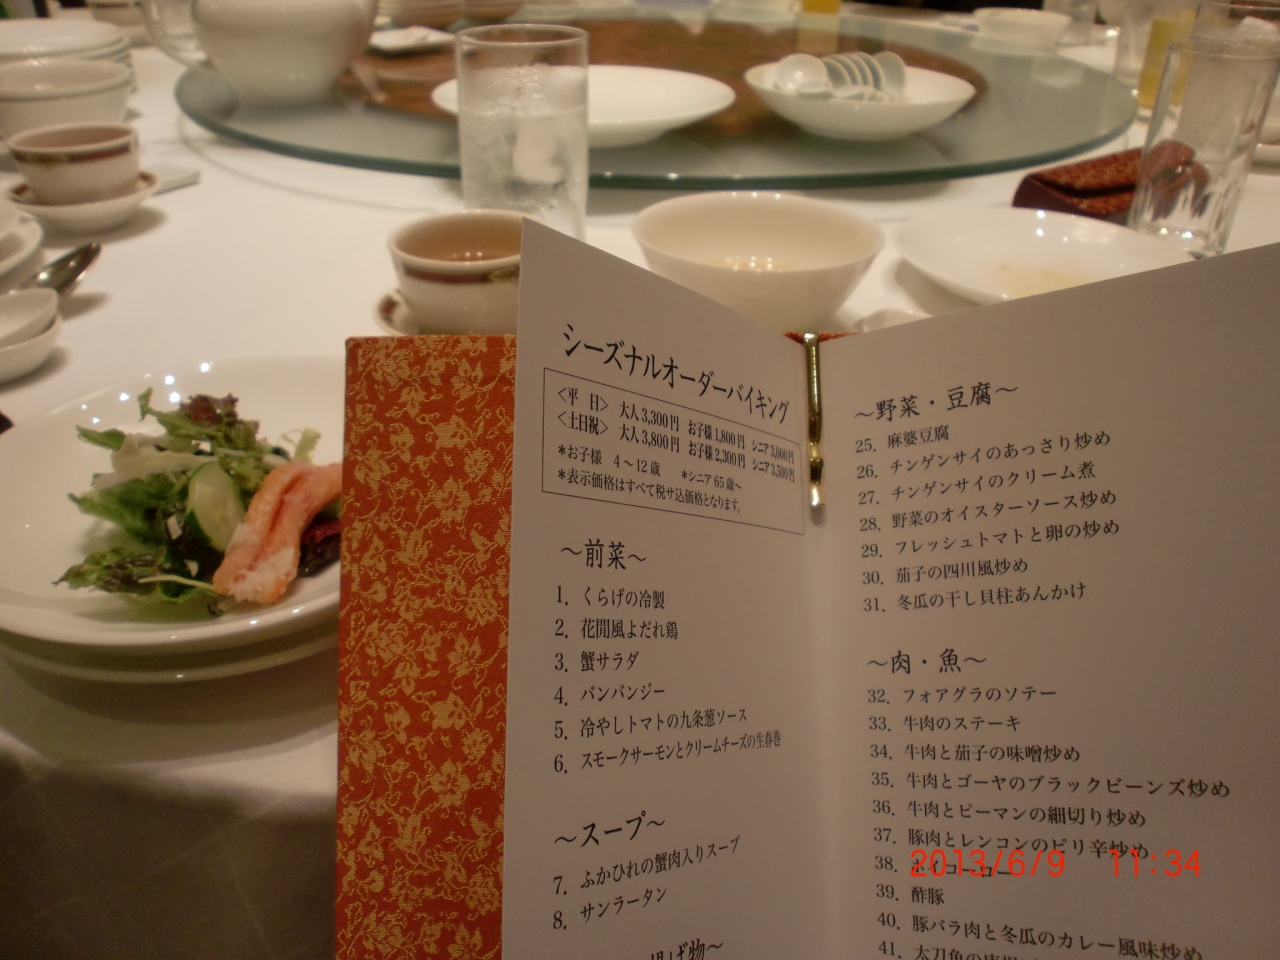 シーズナルオーダーバイキング
〈平 日〉 大人3,300円 お子様1,800円 シニア3,000円
〈土日祝〉 大人3,800円 お子様2,300円 シニア3,500円
*お子様 4~12歳 *シニア65歳~
*表示価格はすべて税サ込価格となります。
~前菜~
1. くらげの冷製
2. 花閒風よだれ鶏
3. 蟹サラダ
4. バンバンジー
5. 冷やしトマトの九条葱ソース
6. スモークサーモンとクリームチーズの生春巻
~スープ~
7. ふかひれの蟹肉入りスープ
8. サンラータン
揚げ物~
~野菜・豆腐~
25. 麻婆豆腐
26. チンゲンサイのあっさり炒め
27. チンゲンサイのクリーム煮
28. 野菜のオイスターソース炒め
29. フレッシュトマトと卵の炒め
30. 茄子の四川風炒め
31. 冬瓜の干し貝柱あんかけ
~肉・魚~
32. フォアグラのソテー
33. 牛肉のステーキ
34. 牛肉と茄子の味噌炒め
35. 牛肉とゴーヤのブラックビーンズ炒め
36. 牛肉とピーマンの細切り炒め
37. 豚肉とレンコンのピリ辛炒め
38. ホイコーロー
39. 酢豚
40. 豚バラ肉と冬瓜のカレー風味炒め
41. 太刀魚の
2013/6/9 11:34